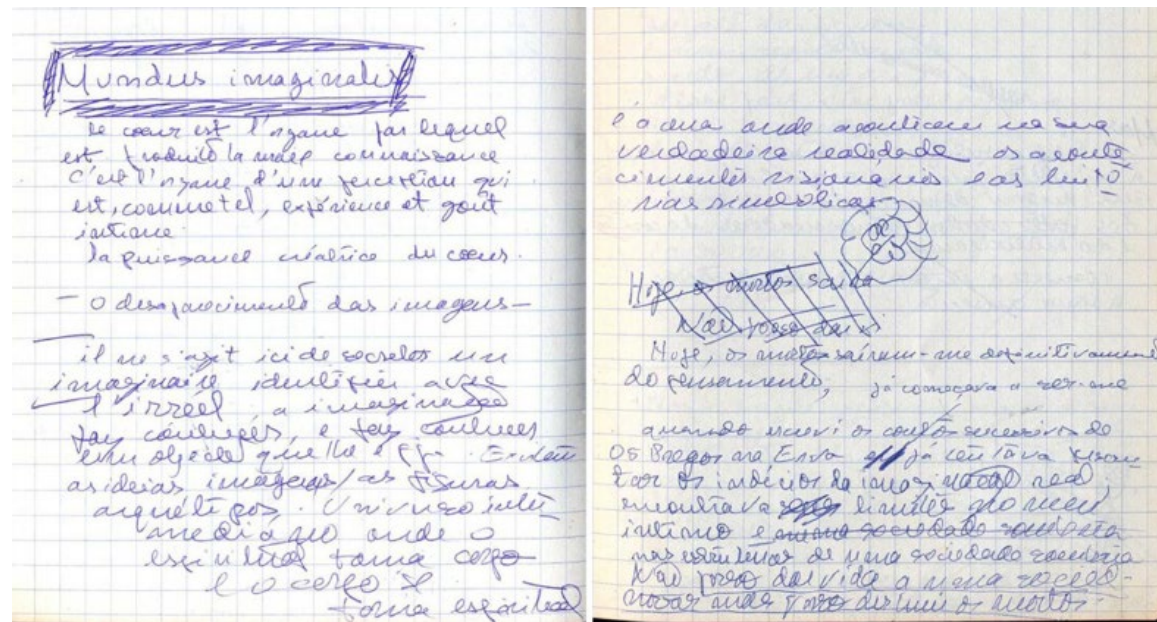 Mundus imaginalis
Le cœur est l'organe par lequel
est produite la vraie connaissance
C'est l'organe d'une perception qui
est, comme tel, expérience et goût
intime
la puissance créatrice du cœur.
— o desaparecimento das imagens —
il ne s'agit ici de un
imaginaire identifier avec
l'irréel, a imaginação
faz conhecer, e faz conhecer
um objecto que lhe é Existem
as ideias imagens / as figuras
arquétipos. Universo inter
mediário onde o
espiritual toma corpo
e o corpo se
torna espiritual
é a cena onde acontecem na sua
verdadeira realidade os aconte
cimentos visionários e as histó
rias simbólicas
Hoje, os mortos
Não posso dar
Hoje, os mortos saíram-me definitivamente
do pensamento, já começava a ser-me
quando escrevi os
Os Pregos na Erva já tentava
os indícios da imaginação real,
encontrava limites no meu
íntimo e numa sociedade
nas estruturas de uma sociedade
Não posso dar vida a uma socied-
os mortos.